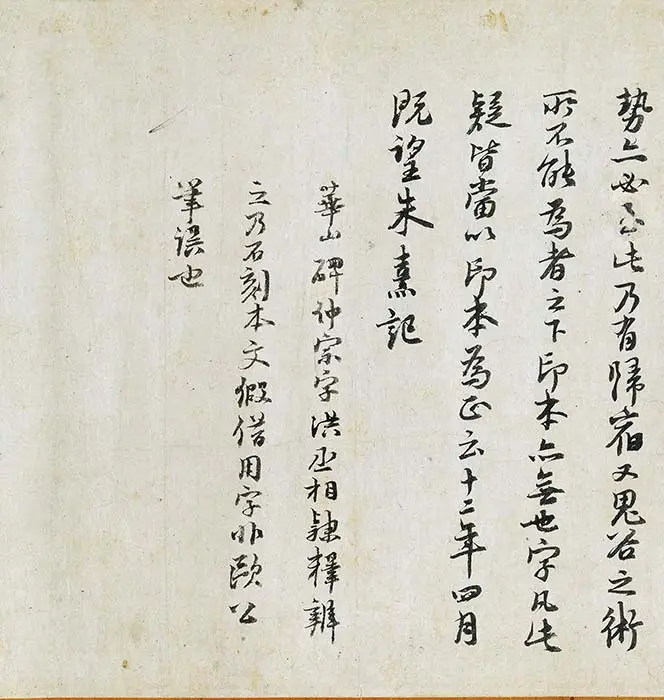 勢亦必至此乃有歸宿又鬼谷之術
所不能為者之下印本亦無也字凡此
疑皆當以印本為正云十二年四月
既望朱熹記
華山碑仲宗字洪丞相隸釋辨
之乃石刻本文假借用字非歐公
筆誤也